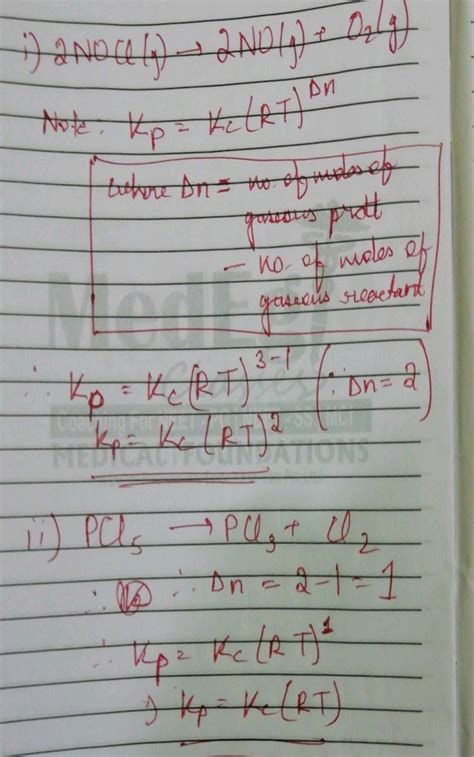 i) 2NOCl(g) → 2NO(g) + O₂(g)
Note: Kp = Kc(RT)^Dn
where Dn = no. of moles of
gaseous prdt
- no. of moles of
gaseous reactant
∴ Kp = Kc(RT)^3-1 (∵ Dn = 2)
Kp = Kc(RT)²
MEDICAL FOUNDATIONS
ii) PCl₅ → PCl₃ + Cl₂
∴ ∴ Dn = 2-1 = 1
∴ Kp = Kc(RT)¹
⇒ Kp = Kc(RT)